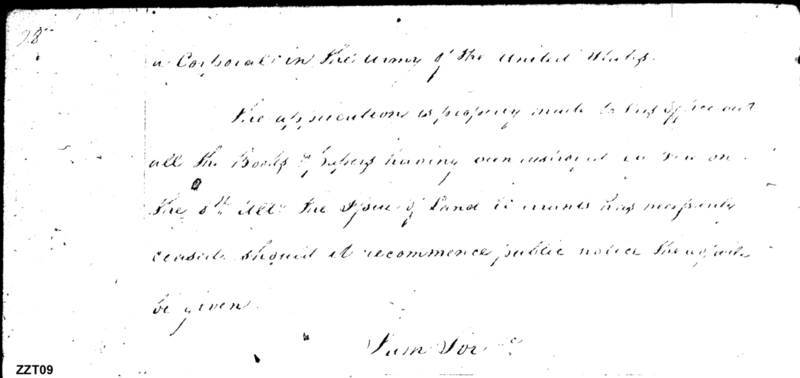 28
a Corporal in the Army of the United States.
The application is properly made to this office but
all the Books & papers having been destroyed by fire on
the 8th Ulto the Issue of Land Warrants has necessarily
ceased. should it recommence public notice thereof will
be given.
I am Sir &c
ZZT09